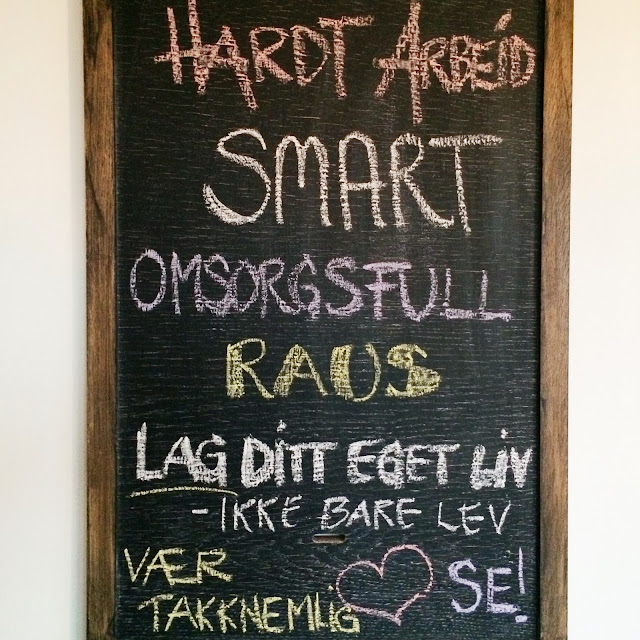 HARDT ARBEID
SMART
OMSORGSFULL
RAUS
LAG DITT EGET LIV
- IKKE BARE LEV
VÆR
TAKKNEMLIG
SE!